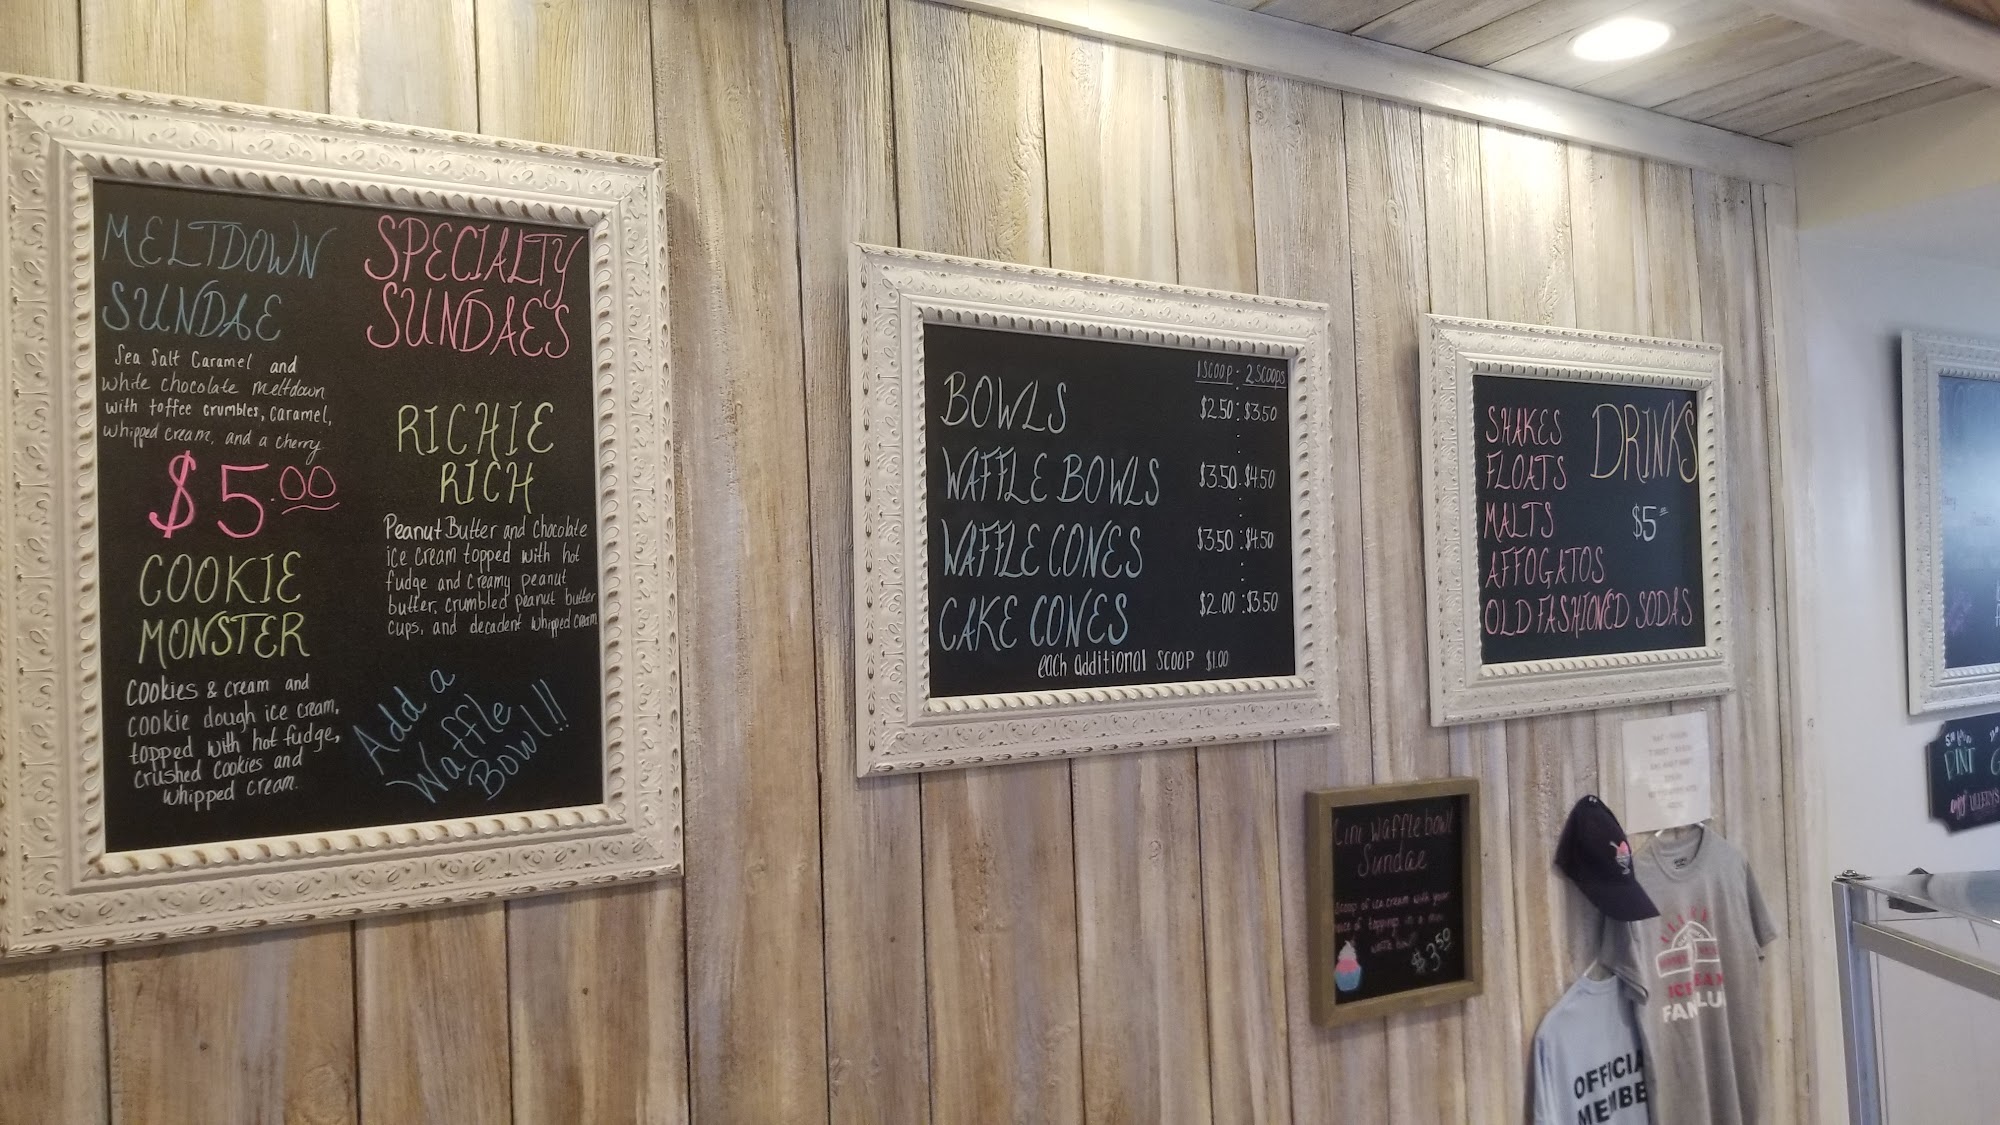 MELTDOWN
SUNDAE
Sea Salt Caramel and
white chocolate meltdown
with toffee crumbles, caramel,
whipped cream, and a cherry
$5.00
COOKIE
MONSTER
Cookies & cream and
cookie dough ice cream,
topped with hot fudge,
crushed cookies and
whipped cream.
SPECIALTY
SUNDAES
RICHIE
RICH
Peanut Butter and chocolate
ice cream topped with hot
fudge and creamy peanut
butter, crumbled peanut butter
cups, and decadent whipped cream
Add a
Waffle
Bowl!!
1 SCOOP : 2 SCOOPS
BOWLS $2.50 : $3.50
WAFFLE BOWLS $3.50 : $4.50
WAFFLE CONES $3.50 : $4.50
CAKE CONES $2.00 : $3.50
each additional scoop $1.00
DRINKS
SHAKES
FLOATS
MALTS
AFFOGATOS
OLD FASHIONED SODAS
$5
waffle bowl
Sundae
Scoop of ice cream with your
of toppings in a mini
waffle bowl
$3.50
ICE
FAN
OFFICIA
MEMBE